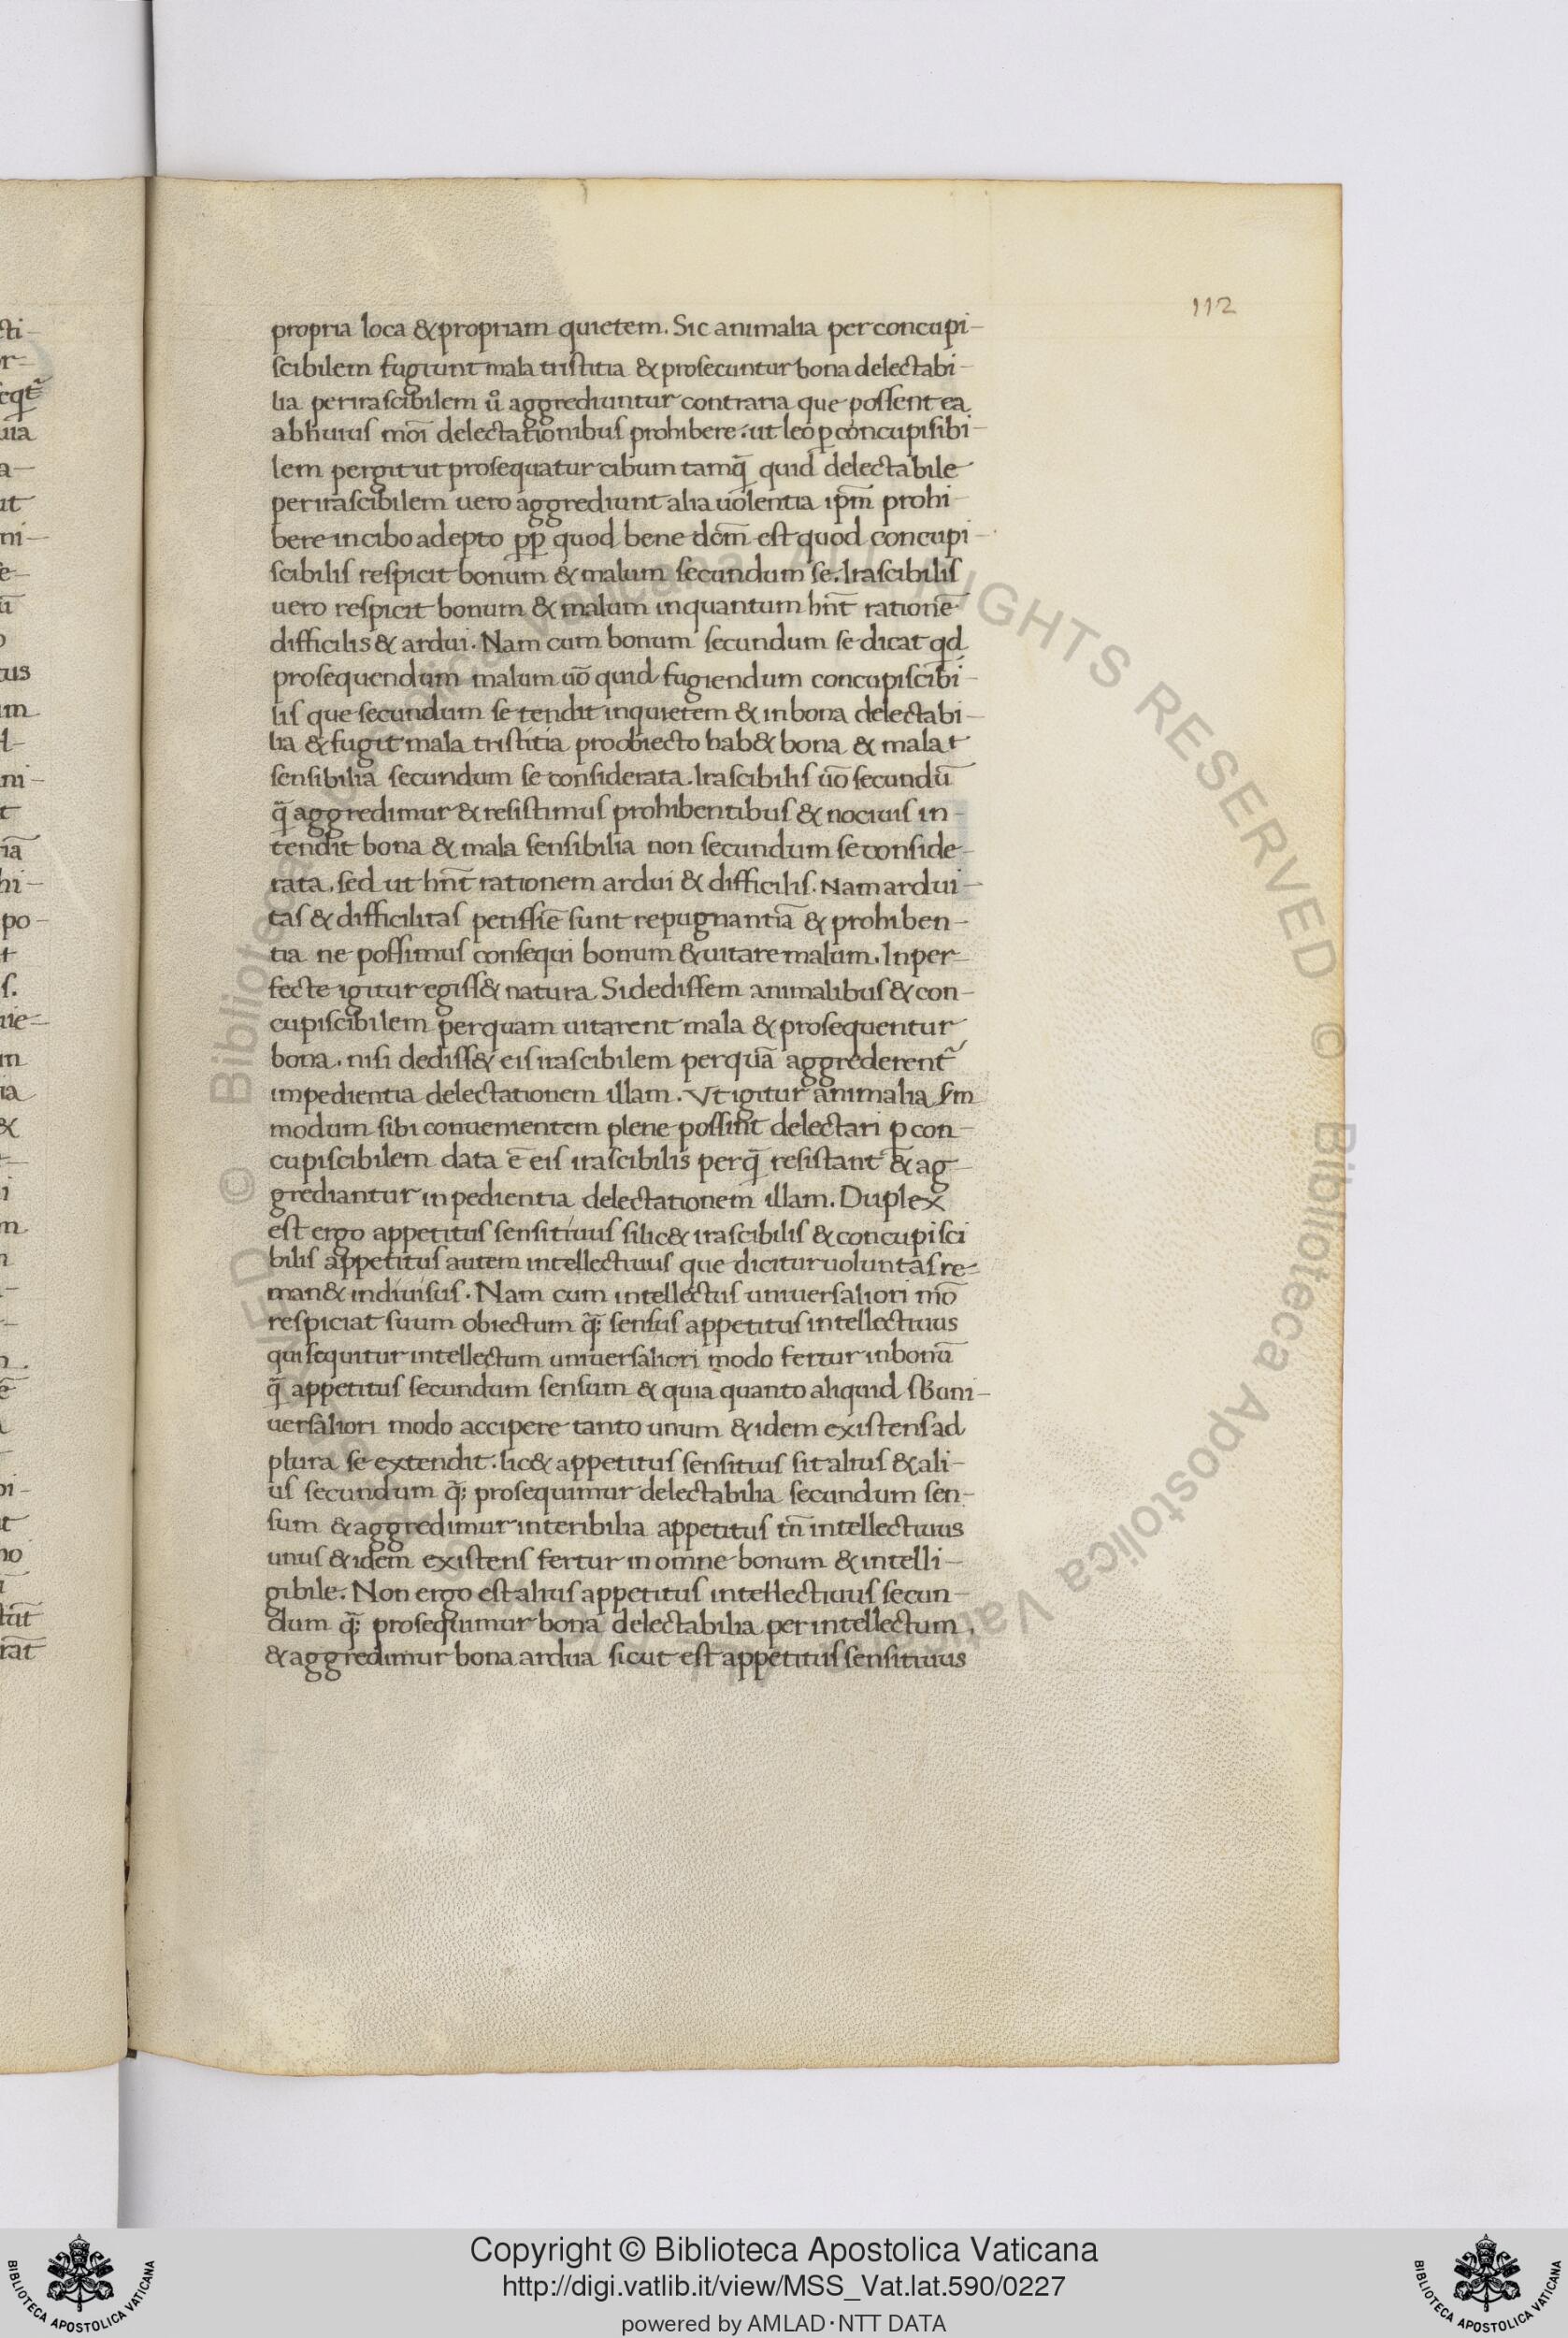 112
propria loca & propriam quietem. Sic animalia per concupi-
scibilem fugiunt mala tristitia & prosecuntur bona delectabi-
lia per irascibilem ů aggrediuntur contraria que possent ea
ab huius moi delectationibus prohibere. ut leo ꝑ concupisibi-
lem pergit ut prosequatur cibum tamq̄ quid delectabile
per irascibilem uero aggrediunt alia uolentia ip̄m prohi
bere in cibo adepto ꝑꝑ quod bene dc̄m est quod concupi-
scibilis respicit bonum & malum secundum se. Irascibilis
uero respicit bonum & malum inquantum hn̄t rationē
difficilis & ardui. Nam cum bonum secundum se dicat qd
prosequendum malum uō quid fugiendum concupiscibi-
lis que secundum se tendit in quietem & in bona delectabi-
lia & fugit mala tristitia pro obiecto hab& bona & mala t
sensibilia secundum se considerata. Irascibilis ūo secundū
q̄ aggredimur & resistimus prohibentibus & nociuis in-
tendit bona & mala sensibilia non secundum se conside-
rata. sed ut hn̄t rationem ardui & difficilis. Nam ardui-
tas & difficilitas petissiē sunt repugnantiā & prohiben-
tia ne possimus consequi bonum & uitare malum. Inper-
fecte igitur egiss& natura. Si dedissem animalibus & con-
cupiscibilem per quam uitarent mala & prosequentur
bona. nisi dediss& eis irascibilem per quā aggrederent᷑
impedientia delectationem illam. Vt igitur animalia sm
modum sibi conuenientem plene possint delectari ꝑ con-
cupiscibilem data ē eis irascibilis per q̄ resistant & ag-
grediantur inpedientia delectationem illam. Duplex
est ergo appetitus sensitiuus silic& irascibilis & concupisci
bilis appetitus autem intellectiuus que dicitur uoluntas re-
man& indiuisus. Nam cum intellectus uniuersaliori mō
respiciat suum obiectum q̄; sensus appetitus intellectiuus
qui sequitur intellectum uniuersaliori modo fertur in bonū
q̄ appetitus secundum sensum & quia quanto aliquid sƀ uni-
uersaliori modo accipere tanto unum & idem existens ad
plura se extendit. lic& appetitus sensitiuis sit alius & ali-
us secundum q̄; prosequimur delectabilia secundum sen-
sum & aggredimur interibilia appetitus tn̄ intellectiuus
unus & idem existens fertur in omne bonum & intelli-
gibile. Non ergo est alius appetitus intellectiuus secun-
dum q̄; prosequimur bona delectabilia per intellectum,
& aggredimur bona ardua sicut est appetitus sensitiuus
Copyright © Biblioteca Apostolica Vaticana
http://digi.vatlib.it/view/MSS_Vat.lat.590/0227
powered by AMLAD·NTT DATA
BIBLIOTECA APOSTOLICA VATICANA
BIBLIOTECA APOSTOLICA VATICANA